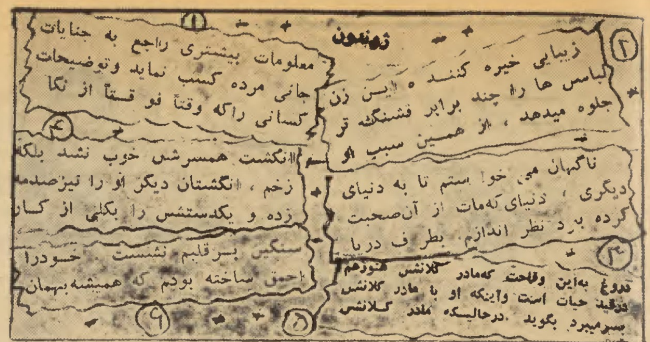 ژوندون
۱
معلومات بیشتری راجع به جنایات
جانی مرده کسب نماید وتوضیحات
کسانی راکه وقتاً فو قتاً از نکا
۲
زیبایی خیره کننـد ه ایـن زن
لباس ها را چند برابر قشنگ تر
جلوه میدهد ، از همین سبب او
۴
انگشت همسرش خوب نشد بلکه
زخم ، انگشتان دیگر او را نیزصدمه
زده و یکدستش را بکلی از کـار
ناگهان می خوا ستم تا به دنیای
دیگری ، دنیای که مات از آن صحبت
کرده برد نظر اندازم. بطر ف دریا
۳
سنگین بـر قلبم نشست خـودرا
احمق ساخته بودم که همیشه بهمان
۹
دروغ به این وقاحت که مادر کلانش هنوزهم
درقید حیات است واینکه او با مادر کلانش
بسرمیبرد بگوید .درحالیـکه مادر کـلانش
۸